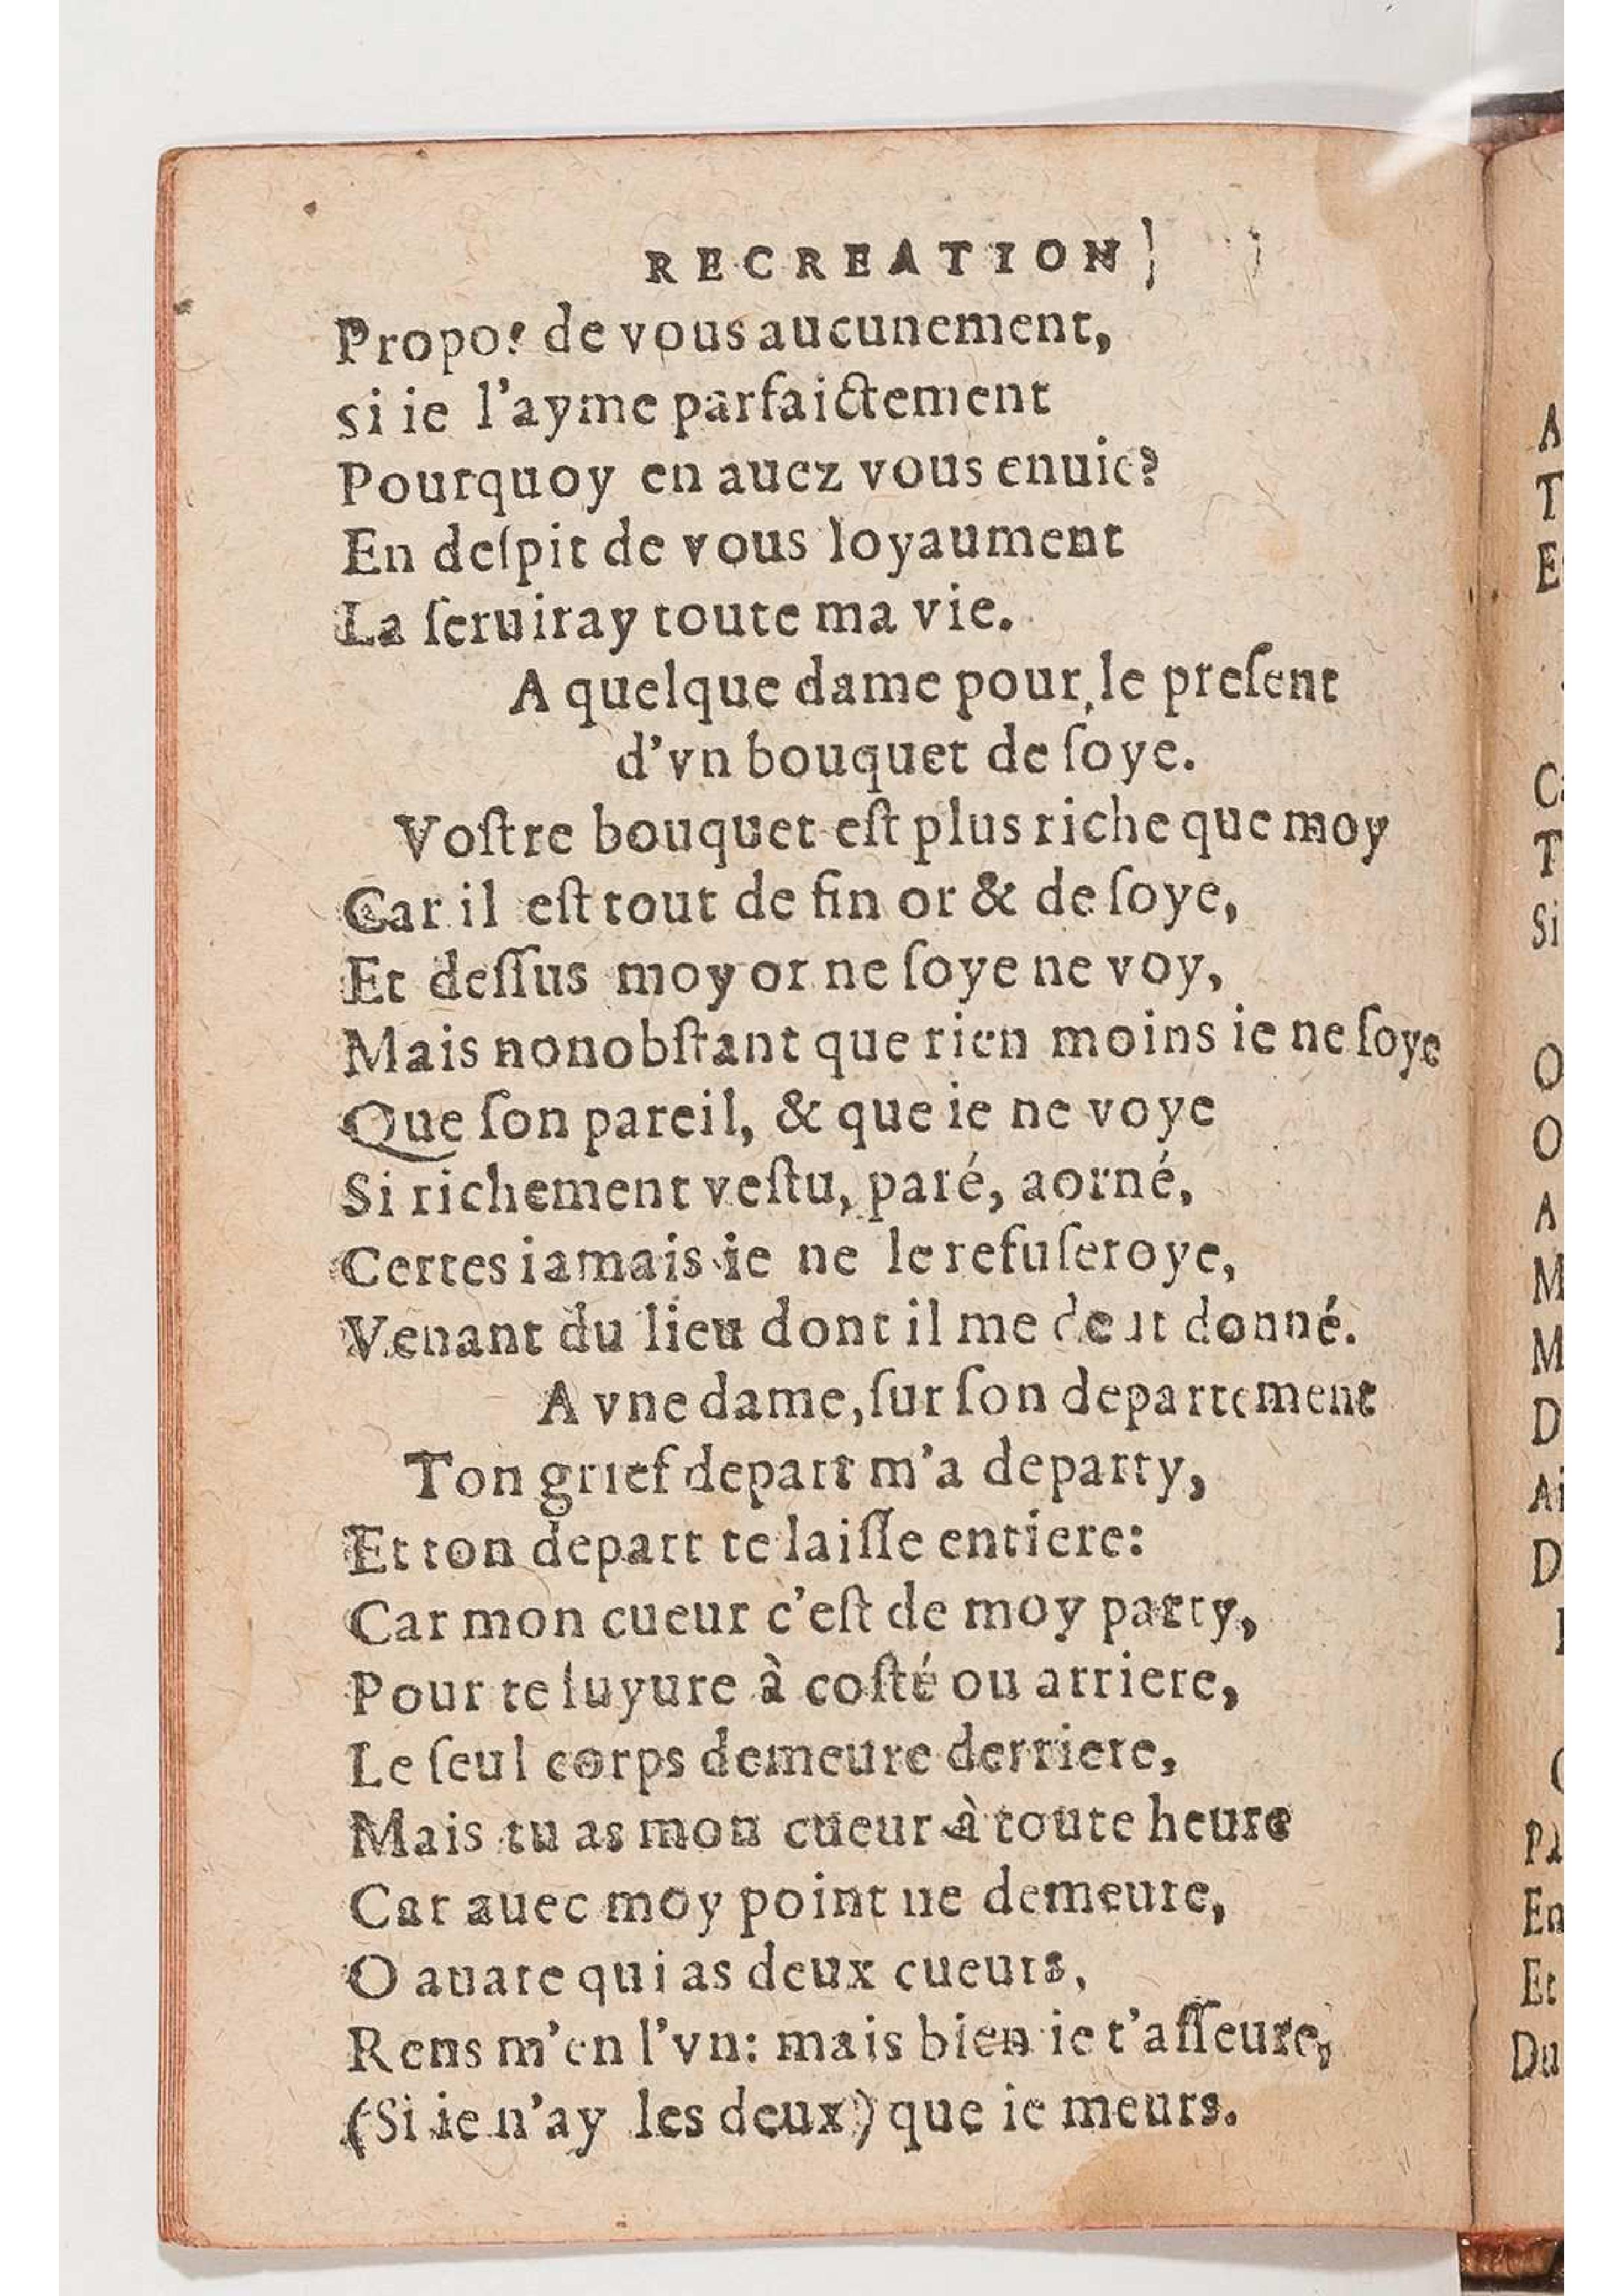 RECREATION
Propos de vous aucunement,
si ie l'ayme parfaictement
Pourquoy en auez vous enuie?
En deſpit de vous loyaument
La ſeruiray toute ma vie.
A quelque dame pour le preſent
d'vn bouquet de ſoye.
Voſtre bouquet eſt plus riche que moy
Car il eſt tout de fin or & de ſoye,
Et deſſus moy or ne ſoye ne voy,
Mais nonobſtant que rien moins ie ne ſoye
Que ſon pareil, & que ie ne voye
Si richement veſtu, paré, aorné,
Certes iamais ie ne le refuſeroye,
Venant du lieu dont il me deut donné.
A vne dame, ſur ſon departement
Ton grief depart m'a departy,
Et ton depart te laiſſe entiere:
Car mon cueur c'eſt de moy party,
Pour te ſuyure à coſté ou arriere,
Le ſeul corps demeure derriere,
Mais tu as mon cueur à toute heure
Car auec moy point ne demeure,
O auare qui as deux cueurs,
Rens m'en l'vn: mais bien ie t'aſſeure,
(Si ie n'ay les deux) que ie meurs.
A
T
E
C
T
Si
O
O
A
M
M
D
Ai
D
En
Et
Du